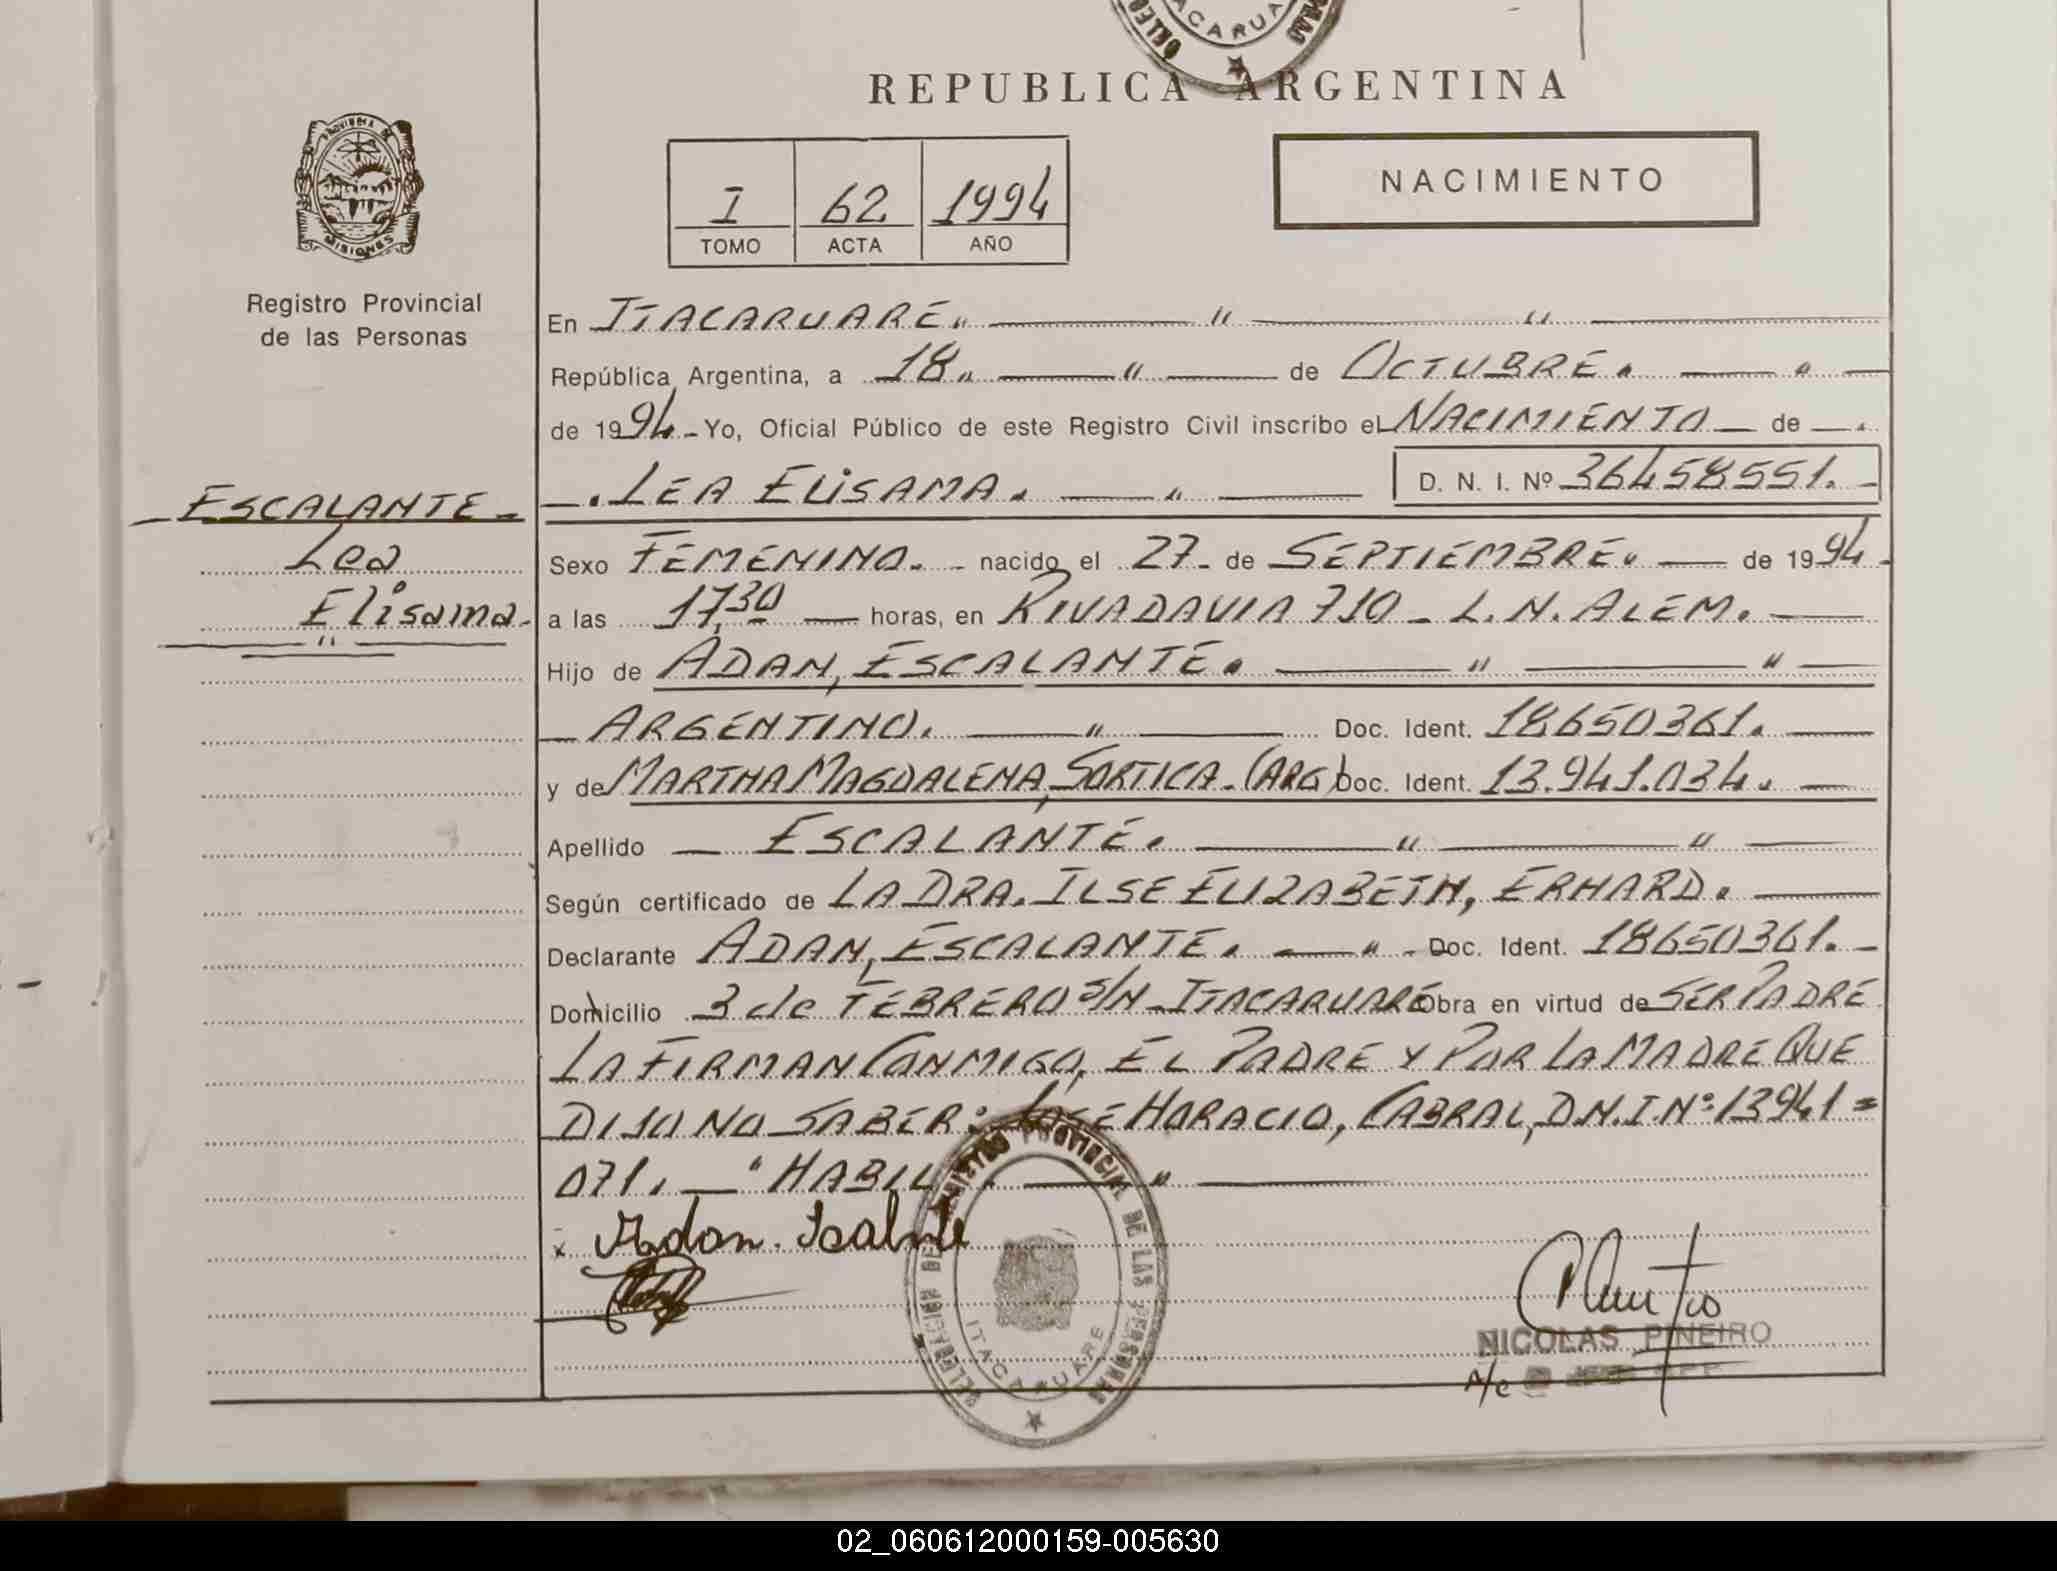 DELEG
ACARUA
REPUBLICA ARGENTINA
PROVINCIA DE
MISIONES
Registro Provincial
de las Personas
I 62 1994
TOMO ACTA AÑO
NACIMIENTO
En ITACARUARE." — " — " —
República Argentina, a 18." — " — de OCTUBRE. — " —
de 1994.- Yo, Oficial Público de este Registro Civil inscribo el NACIMIENTO — de —.
—. LEA ELISAMA. — " — D. N. I. Nº 36458551. -
ESCALANTE -
Lea
Elisama.-
"
Sexo FEMENINO. - nacido el 27- de SEPTIEMBRE. — de 1994-
a las 17,30 — horas, en RIVADAVIA 710 - L. N. ALEM. —
Hijo de ADAN, ESCALANTE. — " — " —
— ARGENTINO. — " — Doc. Ident. 18650361. —
y de MARTHA MAGDALENA, SORTICA-(ARG) Doc. Ident. 13.941.034. —
Apellido — ESCALANTE. — " — " —
Según certificado de LA DRA. ILSE ELIZABETH, ERHARD. —
Declarante ADAN, ESCALANTE. — " - Doc. Ident. 18650361. -
Domicilio 3 de FEBRERO S/N - ITACARUARE Obra en virtud de SER PADRE
LA FIRMAN CONMIGO, EL PADRE Y POR LA MADRE QUE
DIJO NO SABER: JOSE HORACIO, CABRAL, D.N.I.Nº 13941=
071. — " HABIL — " —
x Adan. Iscalnte
DELEGACION DEL REGISTRO PROVINCIAL DE LAS PERSONAS
ITACARUARE
NICOLAS PINEIRO
A/c
02_060612000159-005630